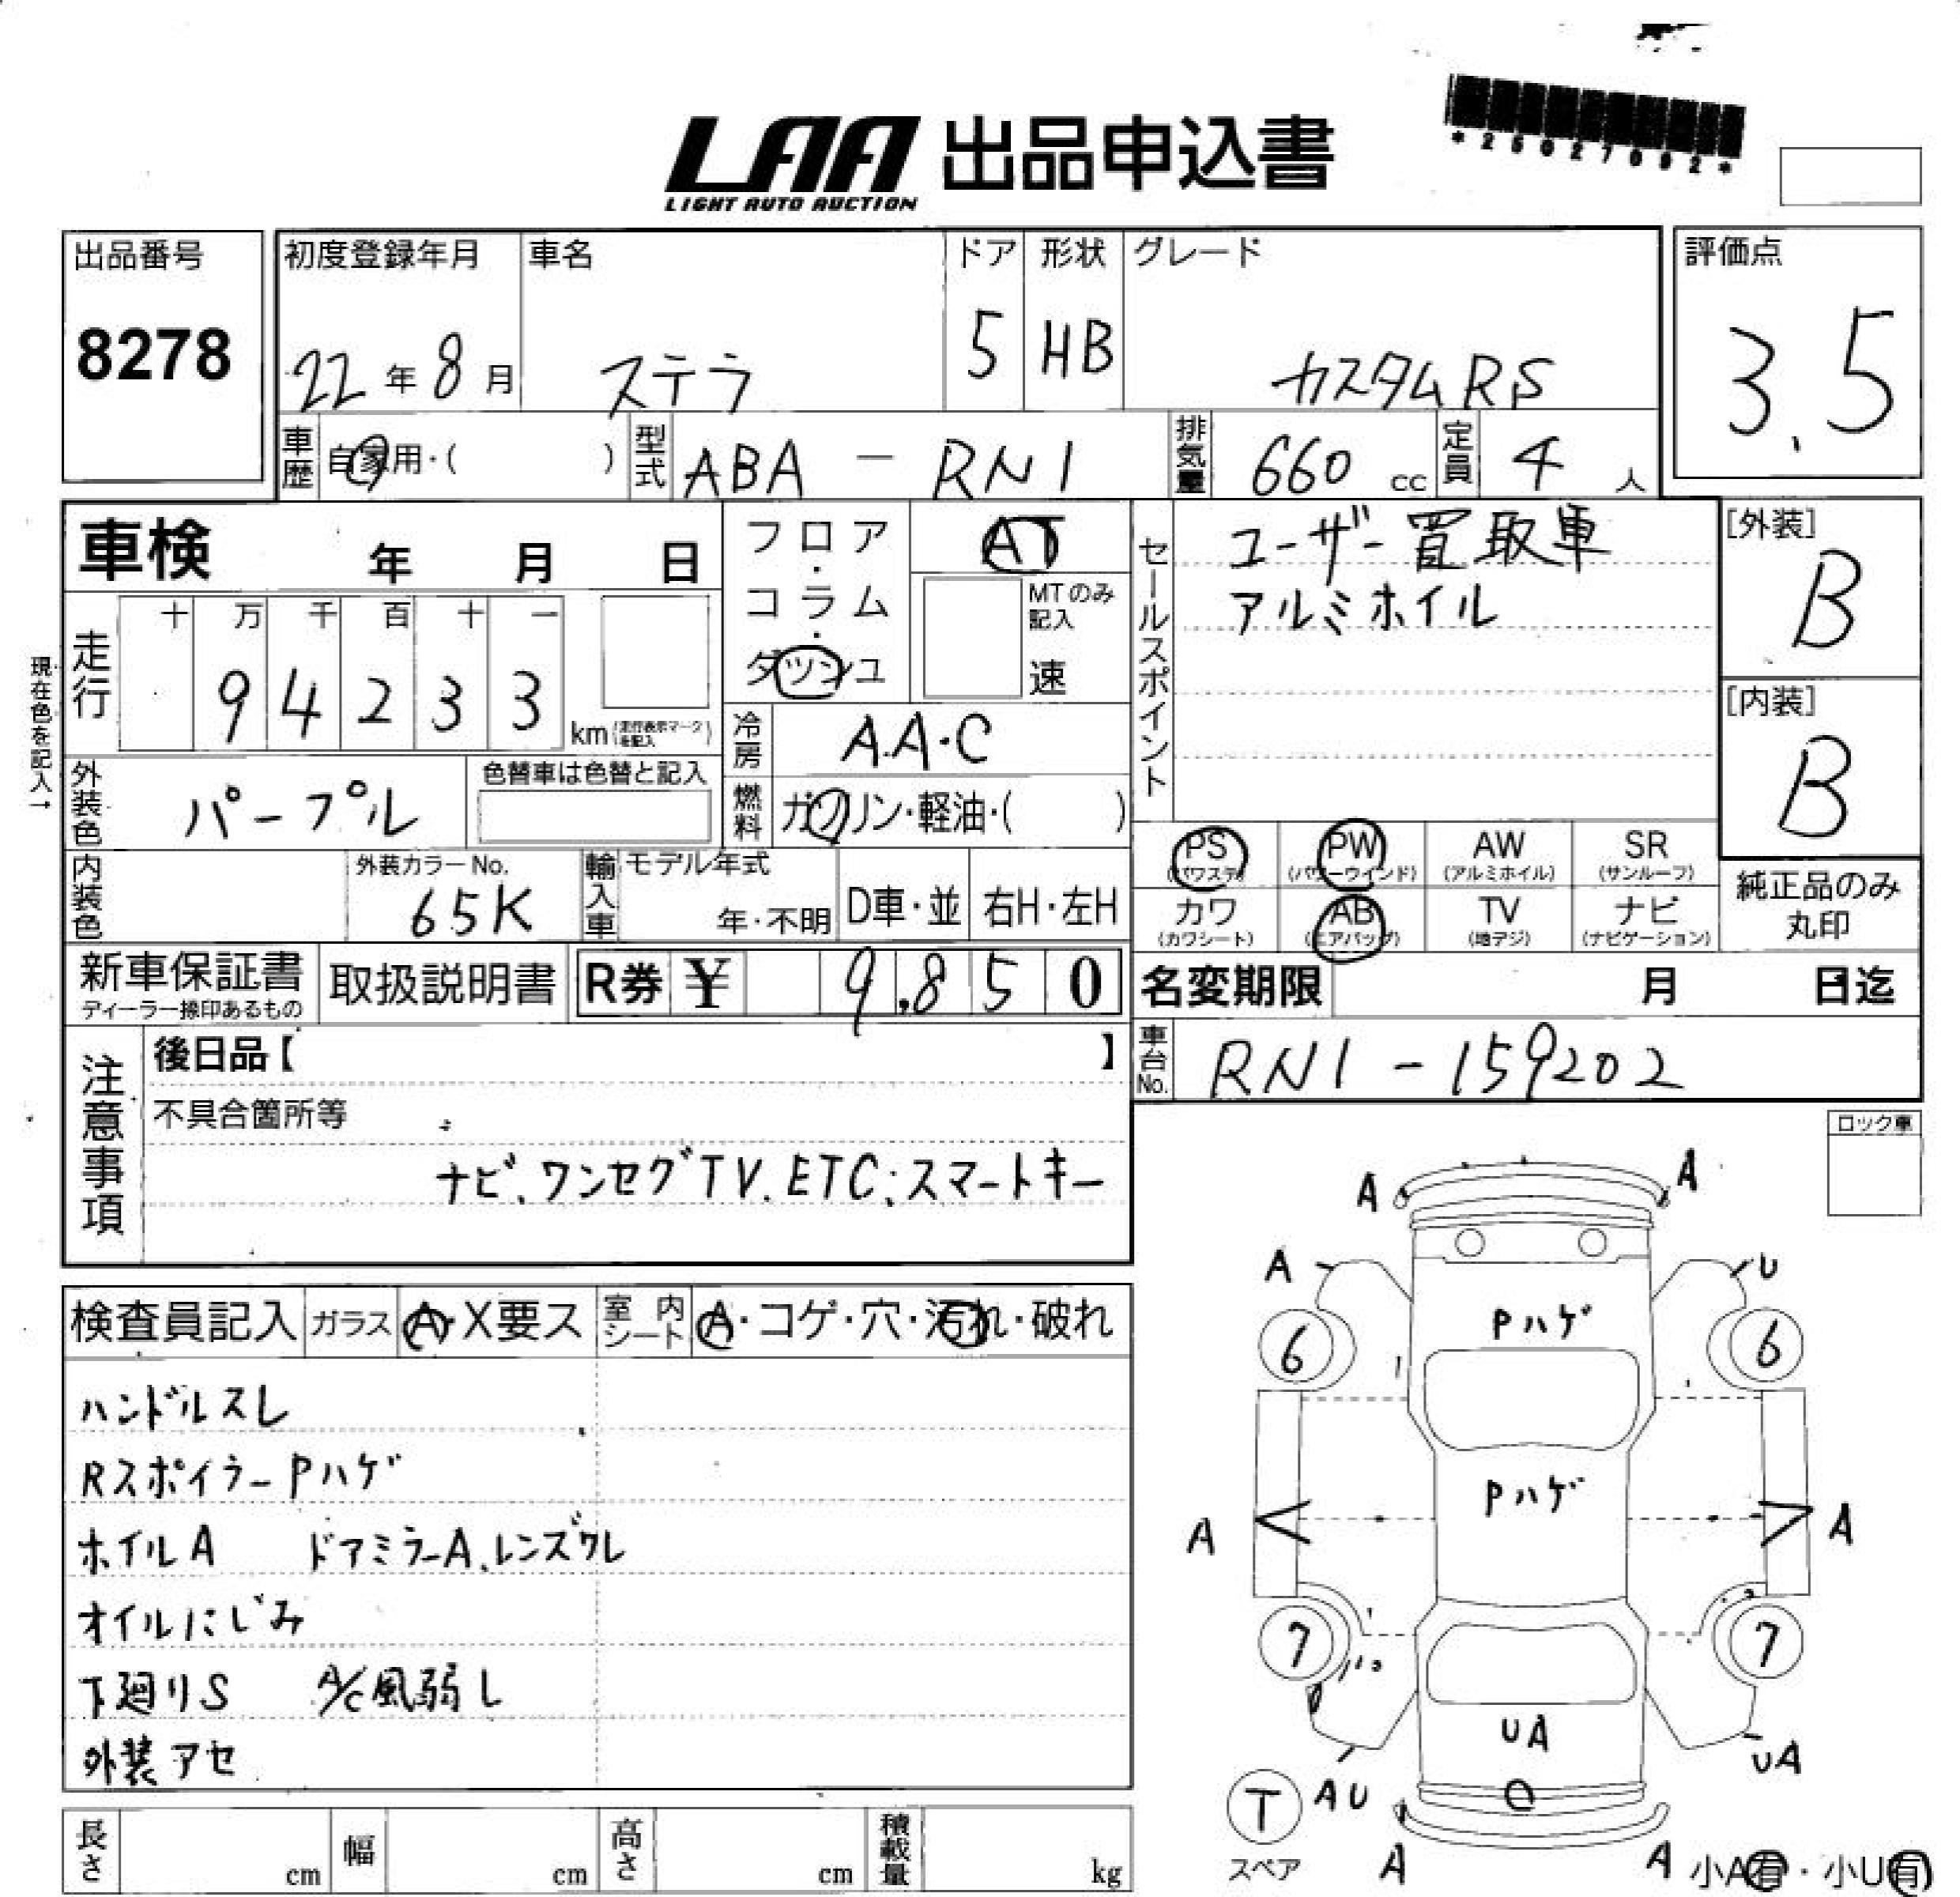 *25027092*
LAA 出品申込書
LIGHT AUTO AUCTION
出品番号
8278
初度登録年月
22年8月
車名
ステラ
ドア
5
形状
HB
グレード
カスタムRS
評価点
3.5
車歴
自家用・( )
型式
ABA - RN1
排気量
660 cc
定員
4 人
車検 年 月 日
フロア・コラム・ダッシュ
AT
MTのみ記入
速
セールスポイント
ユーザー買取車
アルミホイル
[外装]
B
[内装]
B
現在色を記入→
走行
十 万 千 百 十 一
9 4 2 3 3
km(走行表示マークを記入)
冷房
A.A.C
燃料
ガソリン・軽油・( )
外装色
パープル
色替車は色替と記入
内装色
外装カラーNo.
65K
輸入車
モデル年式
年・不明
D車・並
右H・左H
PS
(パワステ)
PW
(パワーウインド)
AW
(アルミホイル)
SR
(サンルーフ)
カワ
(カワシート)
AB
(エアバッグ)
TV
(地デジ)
ナビ
(ナビゲーション)
純正品のみ
丸印
新車保証書
ディーラー捺印あるもの
取扱説明書
R券 ¥ 9,850
名変期限 月 日迄
車台No.
RN1-159202
注意事項
後日品【 】
不具合箇所等
ナビ、ワンセグTV.ETC.スマートキー
ロック車
検査員記入
ガラス
A・X要ス
室内シート
A・コゲ・穴・汚れ・破れ
ハンドルスレ
RスポイラーPハゲ
ホイルA ドアミラーA、レンズクレ
オイルにじみ
下廻りS A/C風弱し
外装アセ
A A
A U
Pハゲ
6 6
Pハゲ
A A
7 7
UA
AU UA
T
スペア
A A
小A有・小U有
長さ cm
幅 cm
高さ cm
積載量 kg